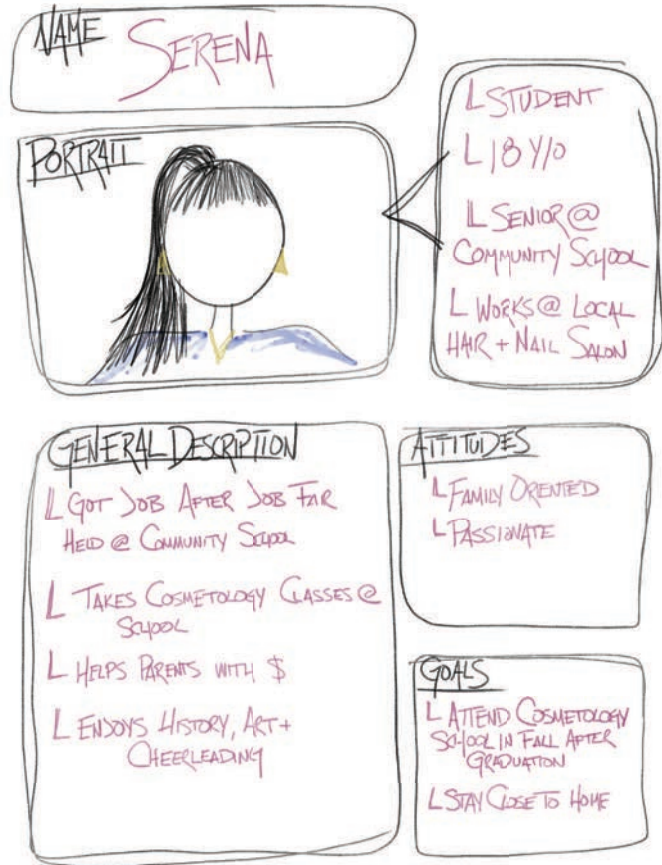 NAME
SERENA
PORTRAIT
L STUDENT
L 18 Y/O
L SENIOR @
COMMUNITY SCHOOL
L WORKS @ LOCAL
HAIR + NAIL SALON
GENERAL DESCRIPTION
L GOT JOB AFTER JOB FAIR
HELD @ COMMUNITY SCHOOL
L TAKES COSMETOLOGY CLASSES @
SCHOOL
L HELPS PARENTS WITH $
L ENJOYS HISTORY, ART +
CHEERLEADING
ATTITUDES
L FAMILY ORIENTED
L PASSIONATE
GOALS
L ATTEND COSMETOLOGY
SCHOOL IN FALL AFTER
GRADUATION
L STAY CLOSE TO HOME